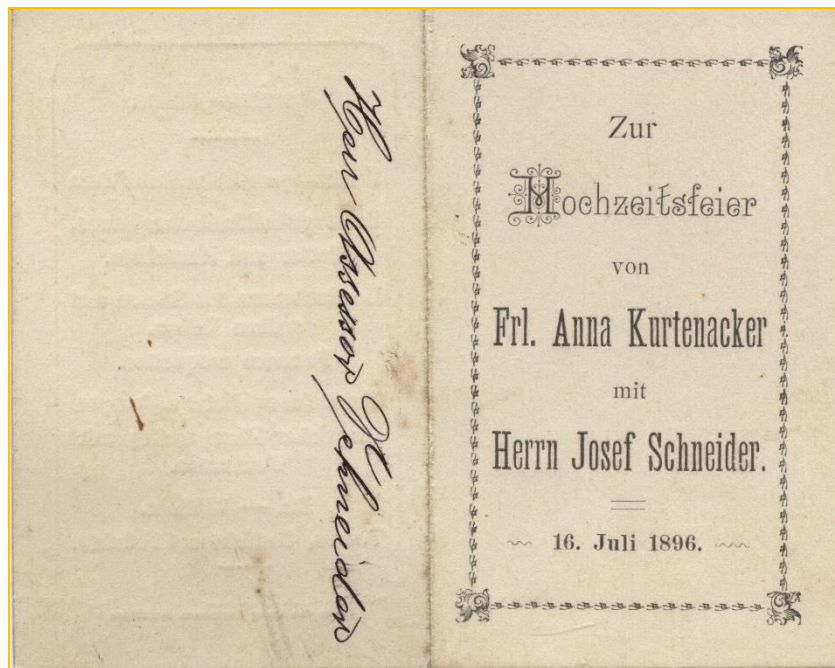 Herr Assessor Schneider
Zur
Hochzeitsfeier
von
Frl. Anna Kurtenacker
mit
Herrn Josef Schneider.
16. Juli 1896.